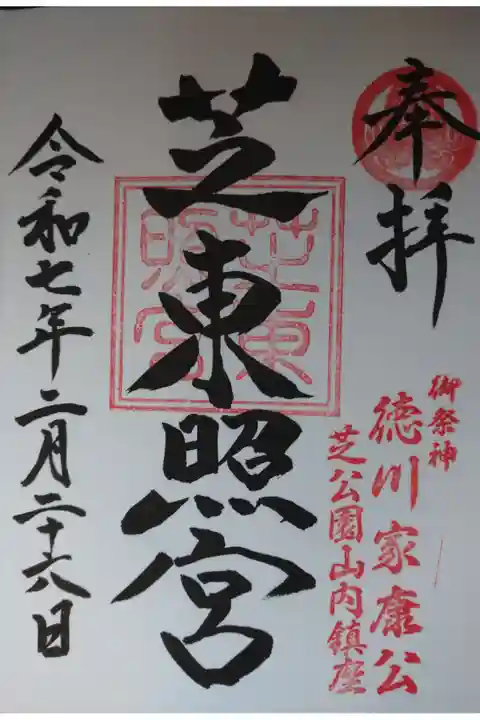 奉拝
御祭神
徳川家康公
芝公園山内鎮座
芝東照宮
芝東照宮
令和七年二月二十六日